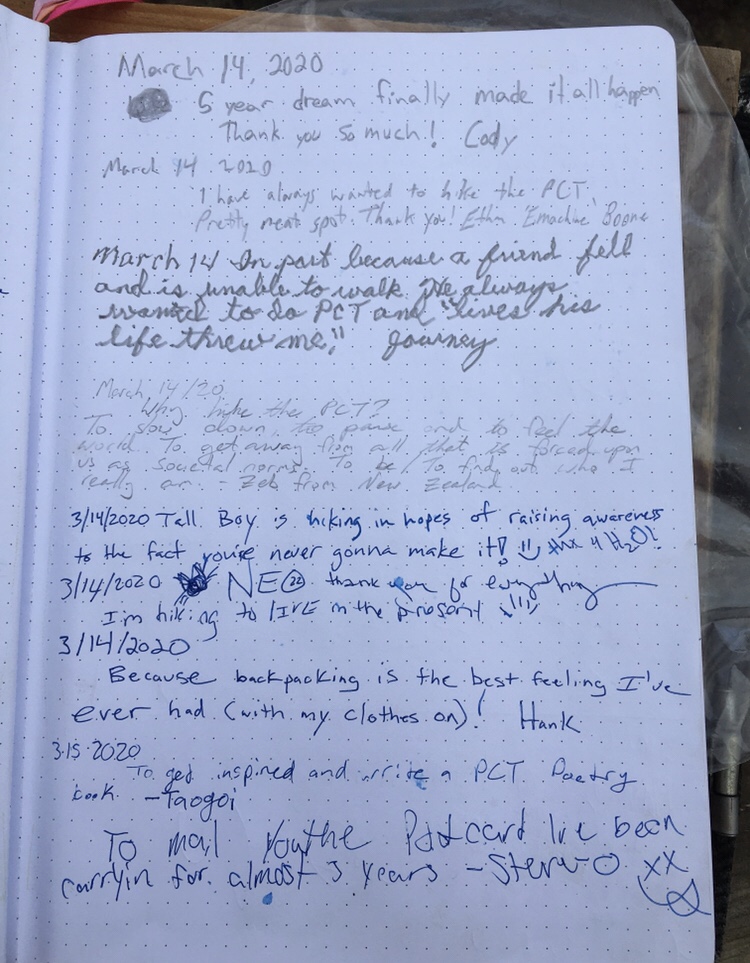 March 14, 2020
5 year dream finally made it all happen
Thank you so much! Cody
March 14 2020
I have always wanted to hike the PCT.
Pretty neat spot. Thank you! Ethan "Emachine" Boone
March 14 In part because a friend fell
and is unable to walk. He always
wanted to do PCT and "lives his
life threw me," Journey
March 14/20
Why hike the PCT?
To slow down, to pause and to feel the
world. To get away from all that is forced upon
us as societal norms. To be/To find out who I
really am - Zeb from New Zealand
3/14/2020 Tall Boy is hiking in hopes of raising awareness
to the fact you're never gonna make it! thx 4 H2O!
3/14/2020 NEO 22 thank you for everything
I'm hiking to LIVE in the present
3/14/2020
Because backpacking is the best feeling I've
ever had (with my clothes on)! Hank
3.15.2020
To get inspired and write a PCT Poetry
book -Taogoi
To mail you the Postcard Ive been
carryin for almost 3 years -Steve-O xx